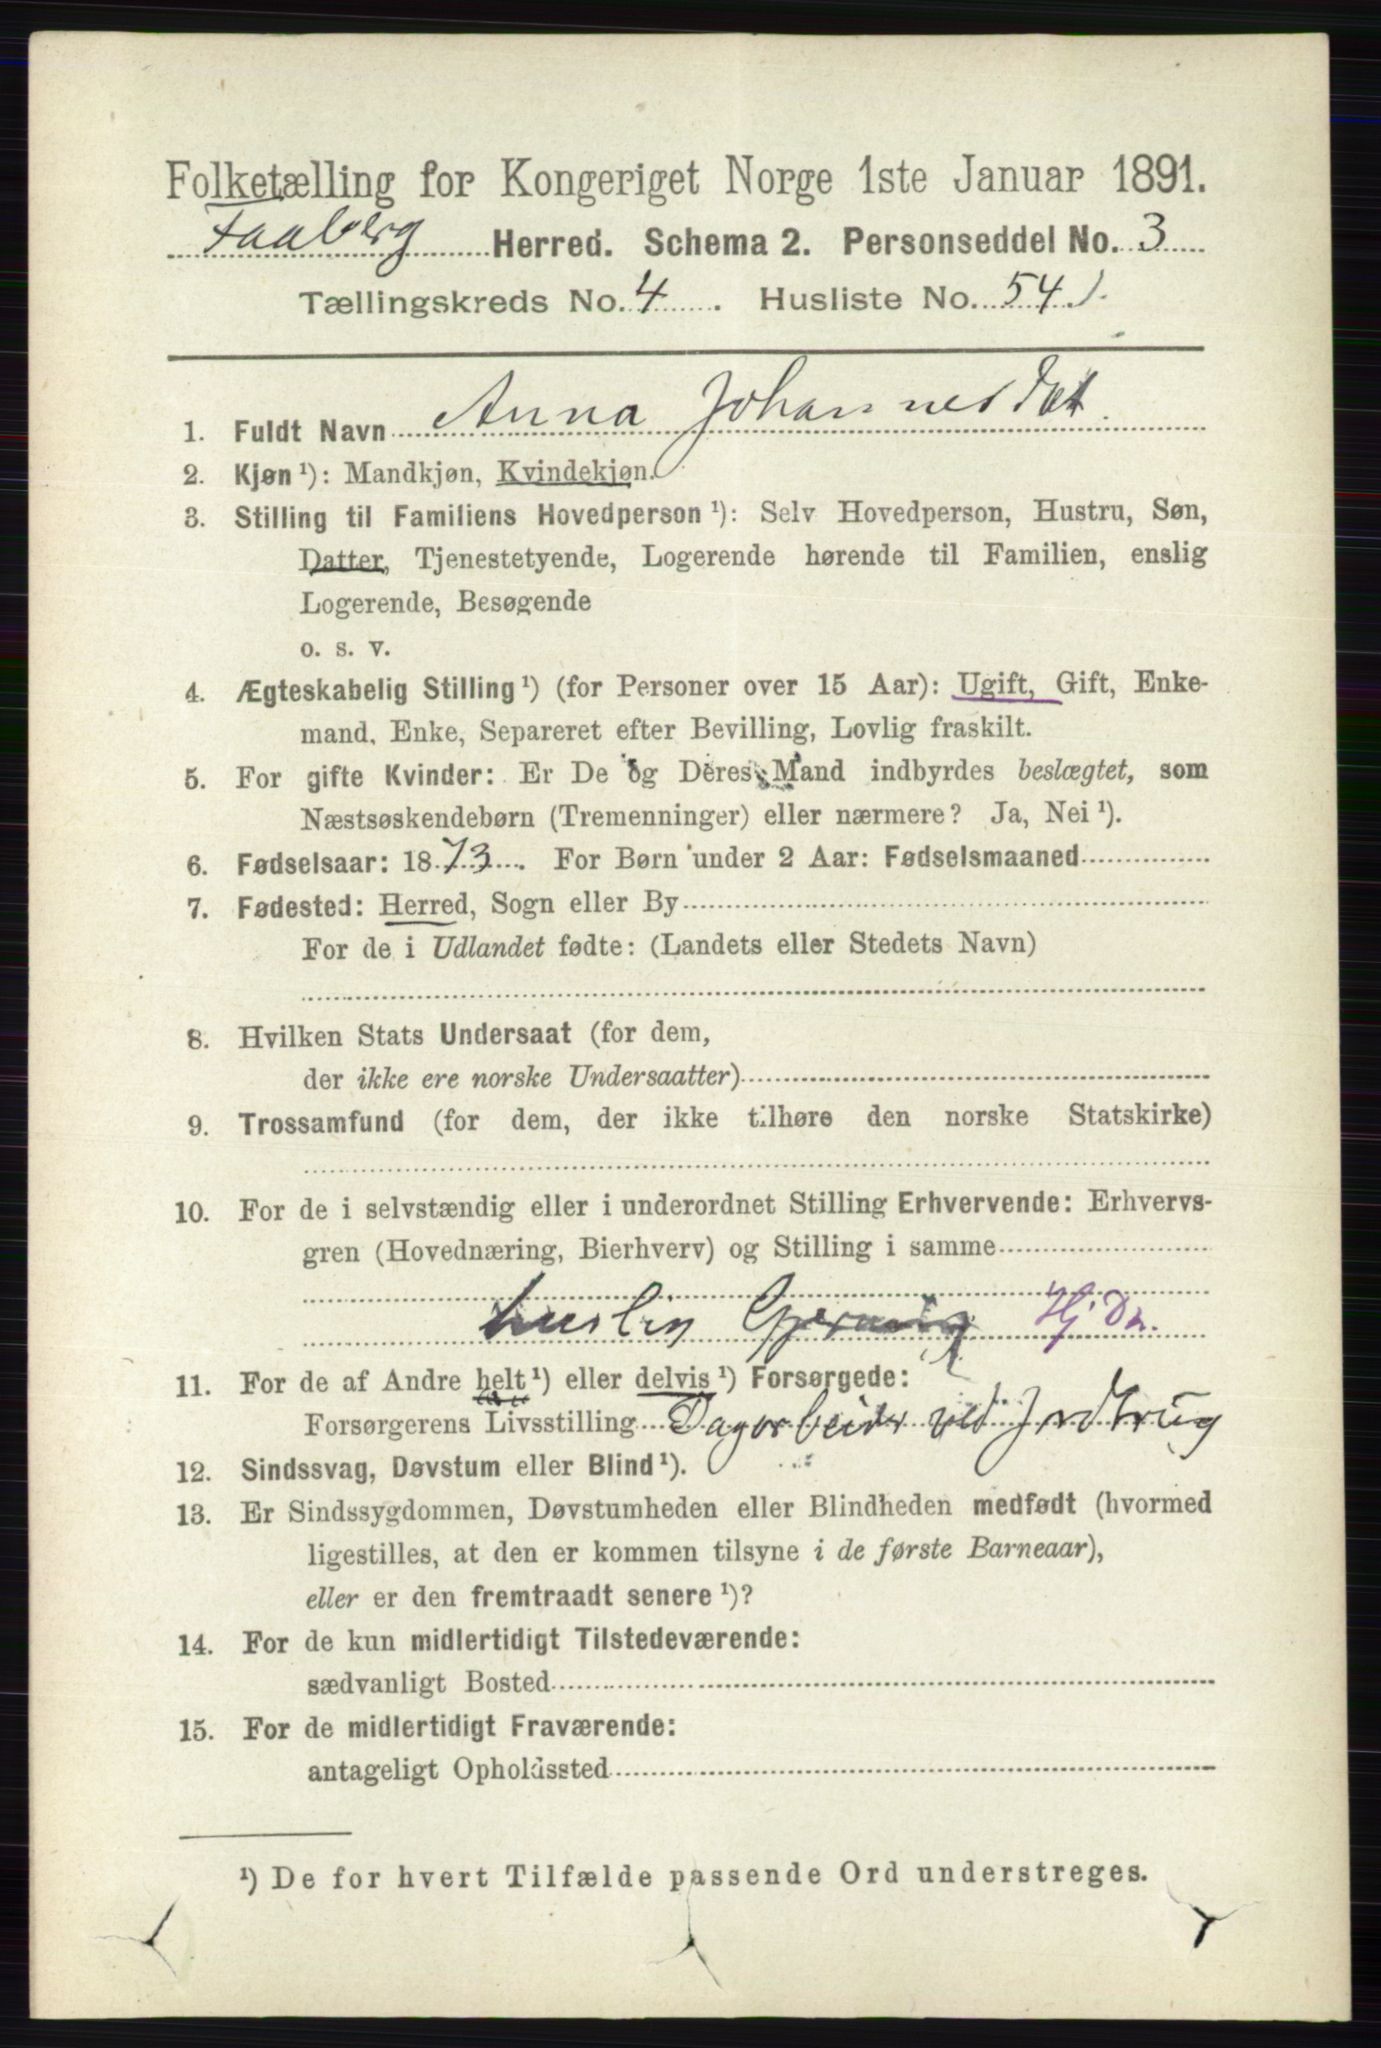 Folketælling for Kongeriget Norge 1ste Januar 1891.
Faaberg Herred. Schema 2. Personseddel No. 3
Tællingskreds No. 4. Husliste No. 54
1. Fuldt Navn Anna Johannesdat.
2. Kjøn ¹): Mandkjøn, Kvindekjøn.
3. Stilling til Familiens Hovedperson ¹): Selv Hovedperson, Hustru, Søn,
Datter, Tjenestetyende, Logerende hørende til Familien, enslig
Logerende, Besøgende
o. s. v.
4. Ægteskabelig Stilling ¹) (for Personer over 15 Aar): Ugift, Gift, Enke-
mand, Enke, Separeret efter Bevilling, Lovlig fraskilt.
5. For gifte Kvinder: Er De og Deres Mand indbyrdes beslægtet, som
Næstsøskendebørn (Tremenninger) eller nærmere? Ja, Nei ¹).
6. Fødselsaar: 1873. For Børn under 2 Aar: Fødselsmaaned
7. Fødested: Herred, Sogn eller By
For de i Udlandet fødte: (Landets eller Stedets Navn)
8. Hvilken Stats Undersaat (for dem,
der ikke ere norske Undersaatter)
9. Trossamfund (for dem, der ikke tilhøre den norske Statskirke)
10. For de i selvstændig eller i underordnet Stilling Erhvervende: Erhvervs-
gren (Hovednæring, Bierhverv) og Stilling i samme
huslig Gjerning Hj Da.
11. For de af Andre helt ¹) eller delvis ¹) Forsørgede:
Forsørgerens Livsstilling Dagarbeider ved Jordbrug
12. Sindssvag, Døvstum eller Blind ¹).
13. Er Sindssygdommen, Døvstumheden eller Blindheden medfødt (hvormed
ligestilles, at den er kommen tilsyne i de første Barneaar),
eller er den fremtraadt senere ¹)?
14. For de kun midlertidigt Tilstedeværende:
sædvanligt Bosted
15. For de midlertidigt Fraværende:
antageligt Opholdssted
¹) De for hvert Tilfælde passende Ord understreges.